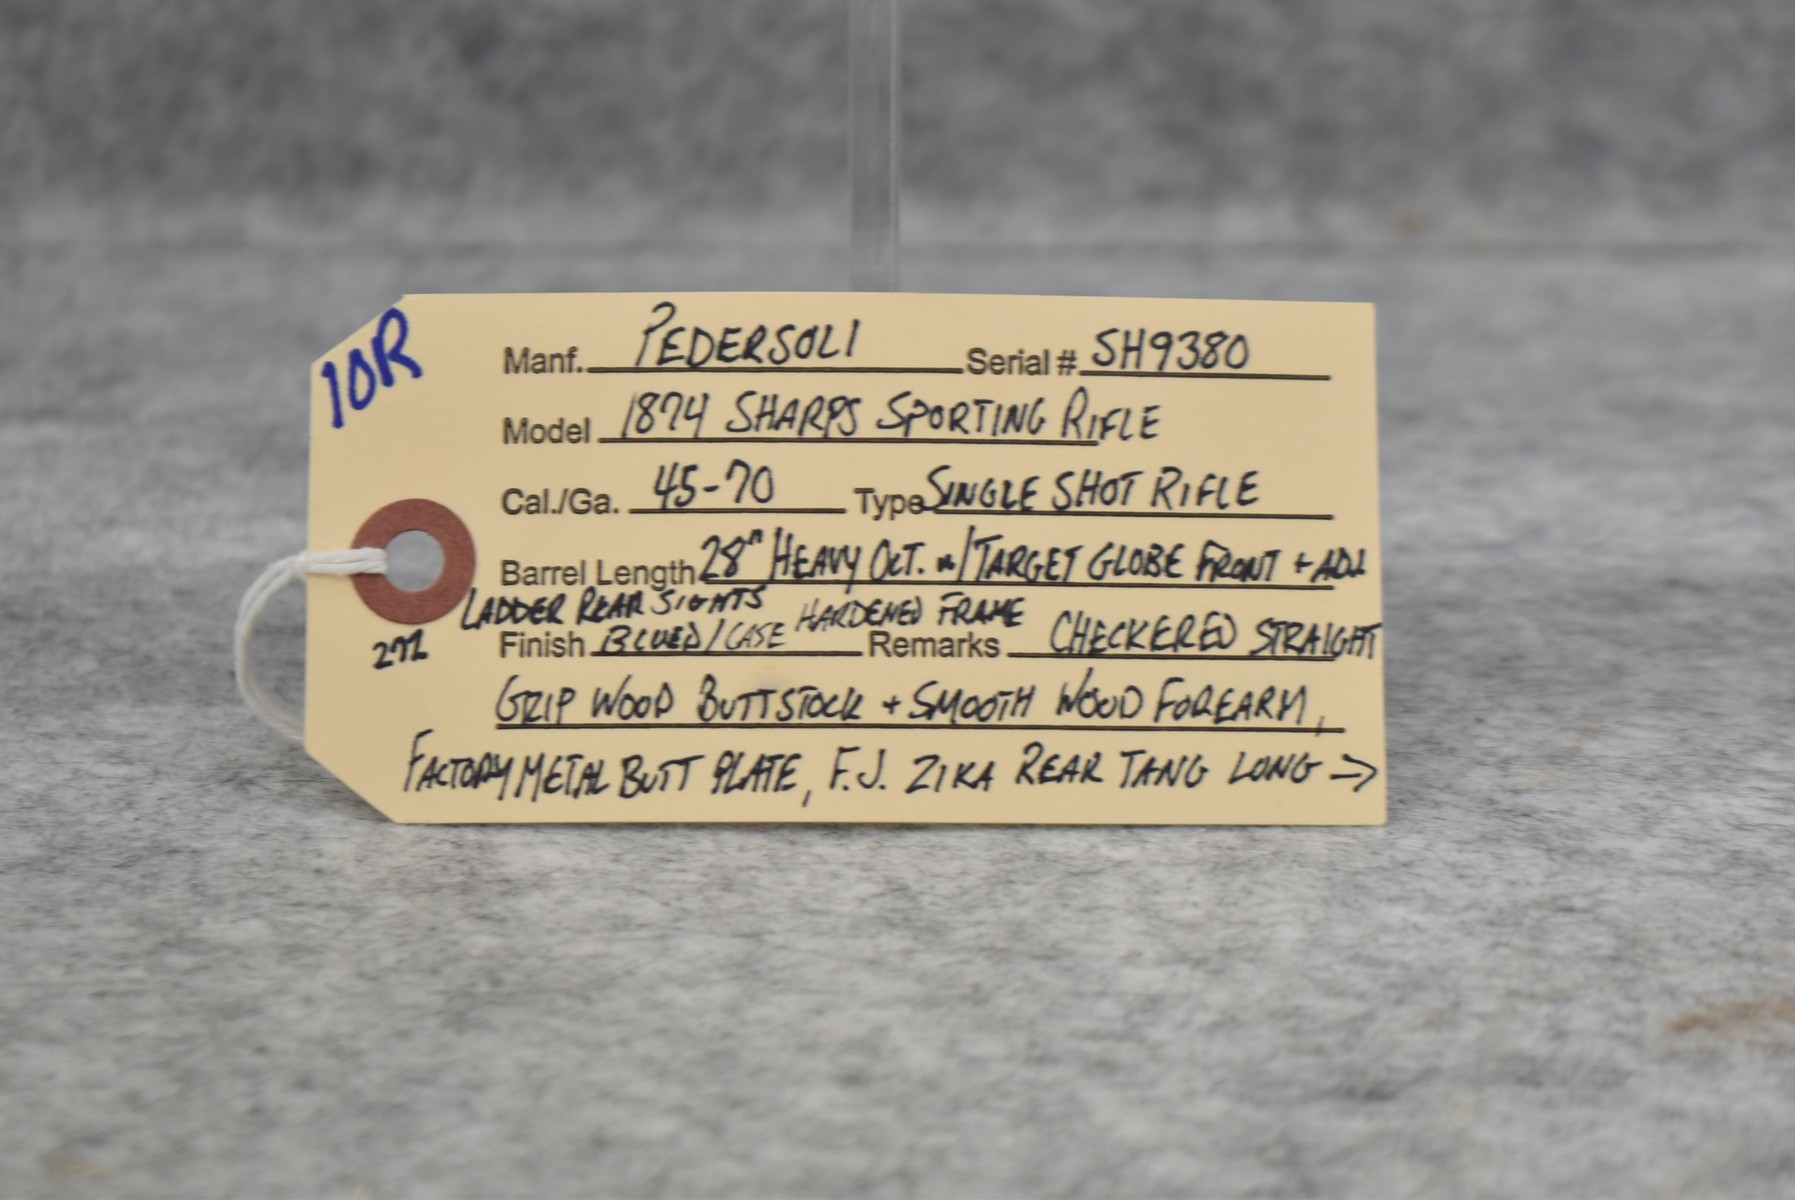 10R
Manf. PEDERSOLI Serial # SH9380
Model 1874 SHARPS SPORTING RIFLE
Cal./Ga. 45-70 Type SINGLE SHOT RIFLE
Barrel Length 28" HEAVY OCT. w/TARGET GLOBE FRONT + ADJ
LADDER REAR SIGHTS
Finish BLUED/CASE HARDENED FRAME Remarks CHECKERED STRAIGHT
GRIP WOOD BUTTSTOCK + SMOOTH WOOD FOREARM,
FACTORY METAL BUTT PLATE, F.J. ZIKA REAR TANG LONG →